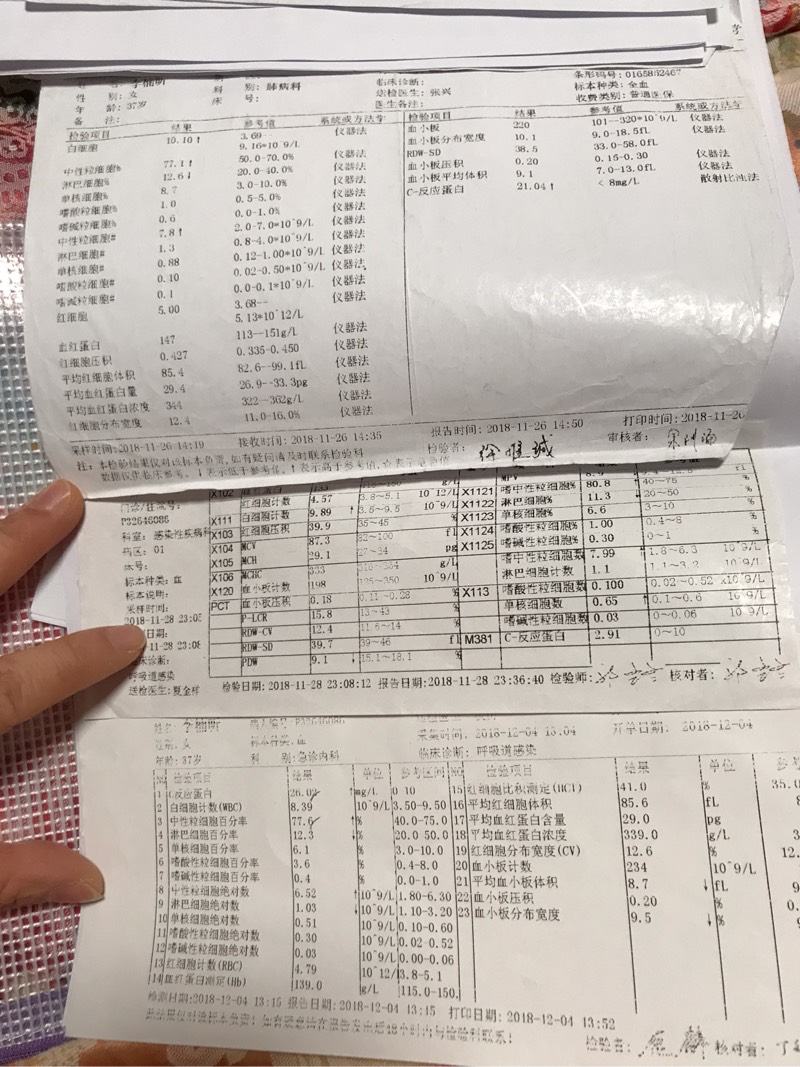 性 别: 女
年 龄: 37岁
备 注:
科 别: 肺病科
床 号:
临床诊断:
送检医生: 张兴
医生备注:
条形码号: 0165882467
标本种类: 全血
收费类别: 普通医保
检验项目 结果 参考值 系统或方法学
白细胞 10.10↑ 3.69-- 9.16*10^9/L 仪器法
中性粒细胞% 77.1↑ 50.0-70.0% 仪器法
淋巴细胞% 12.6↓ 20.0-40.0% 仪器法
单核细胞% 8.7 3.0-10.0% 仪器法
嗜酸粒细胞% 1.0 0.5-5.0% 仪器法
嗜碱粒细胞% 0.6 0.0-1.0% 仪器法
中性粒细胞# 7.8↑ 2.0-7.0*10^9/L 仪器法
淋巴细胞# 1.3 0.8-4.0*10^9/L 仪器法
单核细胞# 0.88 0.12-1.00*10^9/L 仪器法
嗜酸粒细胞# 0.10 0.02-0.50*10^9/L 仪器法
嗜碱粒细胞# 0.1 0.0-0.1*10^9/L 仪器法
红细胞 5.00 3.68-- 5.13*10^12/L 仪器法
血红蛋白 147 113--151g/L 仪器法
红细胞压积 0.427 0.335-0.450 仪器法
平均红细胞体积 85.4 82.6--99.1fL 仪器法
平均血红蛋白量 29.4 26.9--33.3pg 仪器法
平均血红蛋白浓度 344 322--362g/L 仪器法
红细胞分布宽度 12.4 11.0-16.0% 仪器法
检验项目 结果 参考值 系统或方法学
血小板 220 101--320*10^9/L 仪器法
血小板分布宽度 10.1 9.0-18.5fL 仪器法
RDW-SD 38.5 33.0-58.0fL
血小板压积 0.20 0.15-0.30 仪器法
血小板平均体积 9.1 7.0-13.0fL 仪器法
C-反应蛋白 21.04↑ < 8mg/L 散射比浊法
采样时间:2018-11-26 14:19 接收时间:2018-11-26 14:35 报告时间:2018-11-26 14:50 打印时间:2018-11-26
注:本检验结果仅对该标本负责,如有疑问请及时联系检验科 检验者: 审核者:
数据仅供临床参考,↓表示低于参考值,↑表示高于参考值,
门诊/住院号:
P32646086
科室: 感染性疾病科
病区: 01
床号:
标本种类: 血
标本说明:
采样时间:
2018-11-28 23:05
日期:
-11-28 23:08
床诊断:
呼吸道感染
送检医生:夏金样
红细胞计数 4.57 3.8~5.1 10^12/L
X111 白细胞计数 9.89 ↑ 3.5~9.5 10^9/L
X103 红细胞压积 39.9 35~45 %
X104 MCV 87.3 82~100 fl
X105 MCH 29.1 27~34 pg
X106 MCHC 333 g/L
X120 血小板计数 198 125~350 10^9/L
PCT 血小板压积 0.18 0.11~0.28 %
P-LCR 15.8 13~43
RDW-CV 12.4 11.6~14
RDW-SD 39.7 39~46 fl
PDW 9.1 ↓ 15.1~18.1 %
MPV
X1121 嗜中性粒细胞% 80.8 ↑ 40~75 %
X1122 淋巴细胞% 11.3 ↓ 20~50 %
X1123 单核细胞% 6.6 3~10 %
X1124 嗜酸性粒细胞% 1.00 0.4~8 %
X1125 嗜碱性粒细胞% 0.30 0~1 %
嗜中性粒细胞数 7.99 ↑ 1.8~6.3 10^9/L
淋巴细胞计数 1.1 1.1~3.2 10^9/L
X113 嗜酸性粒细胞数 0.100 0.02~0.52 x10^9/L
单核细胞数 0.65 ↑ 0.1~0.6 10^9/L
嗜碱性粒细胞数 0.03 0~0.06 10^9/L
M381 C-反应蛋白 2.91 0~10
检验日期:2018-11-28 23:08:12 报告日期:2018-11-28 23:36:40 检验师: 核对者:
性别: 女
年龄: 37岁
病人编号 P32646086
标本种类: 血
科 别:急诊内科
采集时间: 2018-12-04 13:04
临床诊断: 呼吸道感染
开单日期: 2018-12-04
NO 检验项目 结果 单位 参考区间 NO 检验项目 结果 单位
1 C反应蛋白 26.02 ↑ mg/L 0 10
2 白细胞计数(WBC) 8.39 10^9/L 3.50-9.50
3 中性粒细胞百分率 77.6 ↑ % 40.0-75.0
4 淋巴细胞百分率 12.3 ↓ % 20.0 50.0
5 单核细胞百分率 6.1 % 3.0-10.0
6 嗜酸性粒细胞百分率 3.6 % 0.4-8.0
7 嗜碱性粒细胞百分率 0.4 % 0.0-1.0
8 中性粒细胞绝对数 6.52 ↑ 10^9/L 1.80-6.30
9 淋巴细胞绝对数 1.03 ↓ 10^9/L 1.10-3.20
10 单核细胞绝对数 0.51 10^9/L 0.10-0.60
11 嗜酸性粒细胞绝对数 0.30 10^9/L 0.02-0.52
12 嗜碱性粒细胞绝对数 0.03 10^9/L 0.00-0.06
13 红细胞计数(RBC) 4.79 10^12/ 3.8-5.1
14 血红蛋白测定(Hb) 139.0 g/L 115.0-150.
15 红细胞比积测定(HCT) 41.0 % 35.0
16 平均红细胞体积 85.6 fL
17 平均血红蛋白含量 29.0 pg
18 平均血红蛋白浓度 339.0 g/L
19 红细胞分布宽度(CV) 12.6 %
20 血小板计数 234 10^9/L
21 平均血小板体积 8.7 ↓ fL
22 血小板压积 0.20 %
23 血小板分布宽度 9.5 ↓ %
检测日期:2018-12-04 13:15 报告日期:2018-12-04 13:15 打印日期:2018-12-04 13:52
检验者: 核对者: